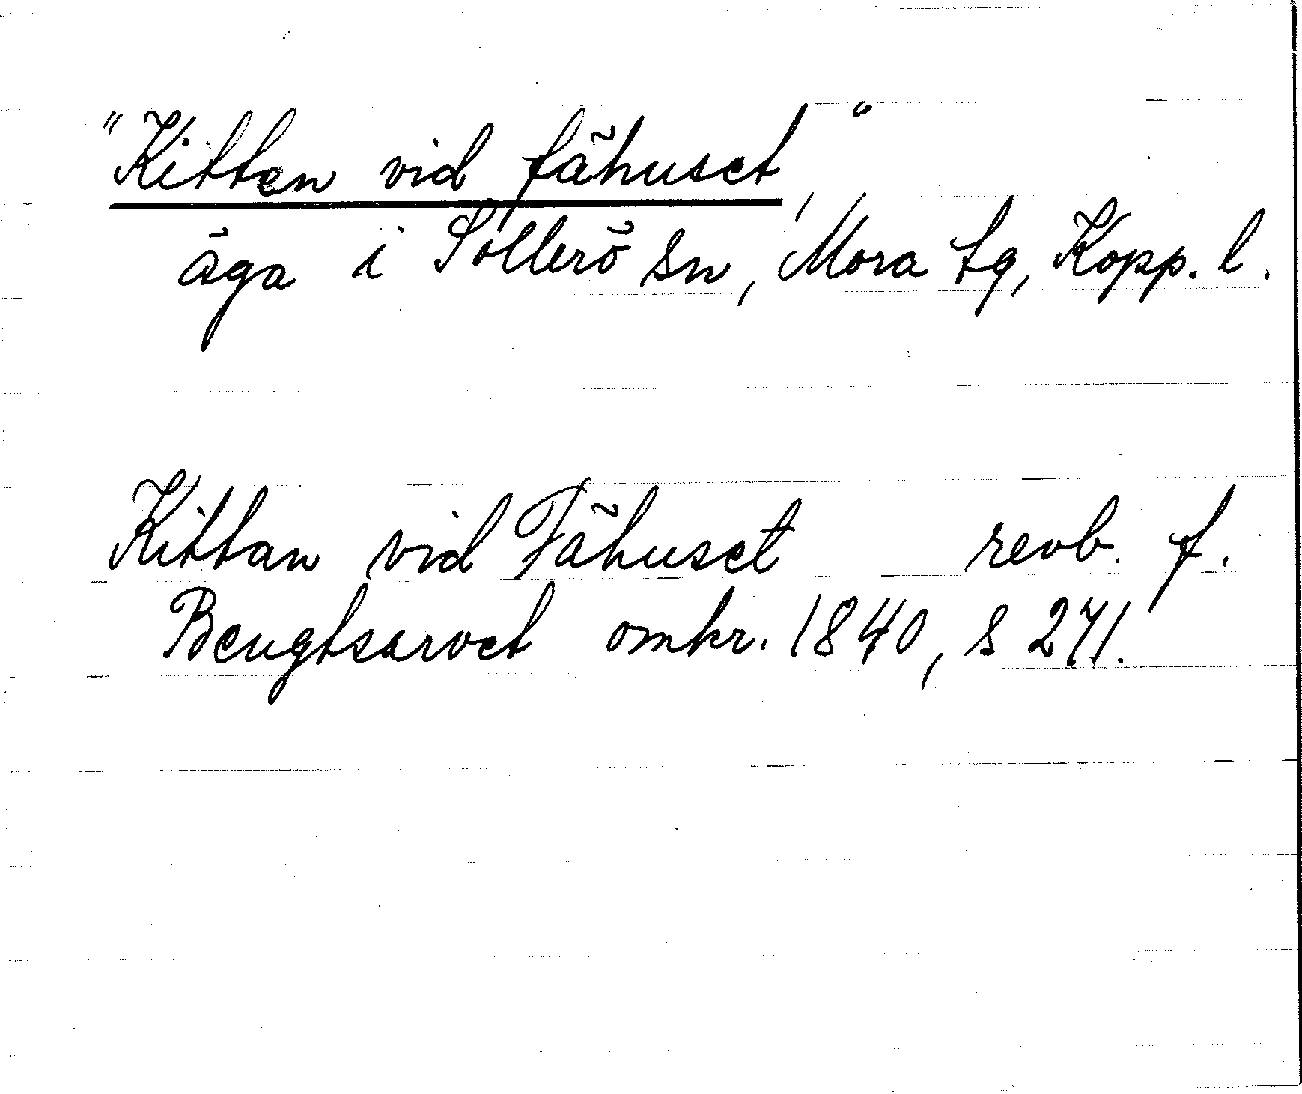 "Kitten vid fähuset,"
äga i Sollerö sn, Mora tg, Kopp. l.
Kittan vid Fähuset revb. f.
Bengtsarvet omkr. 1840, s 271.